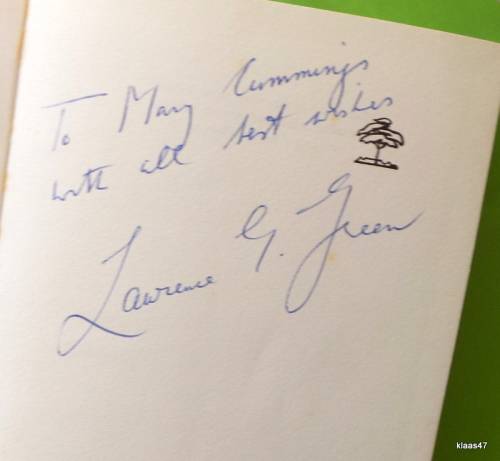 To Mary Cummings
with all best wishes
Lawrence G. Green
klaas47